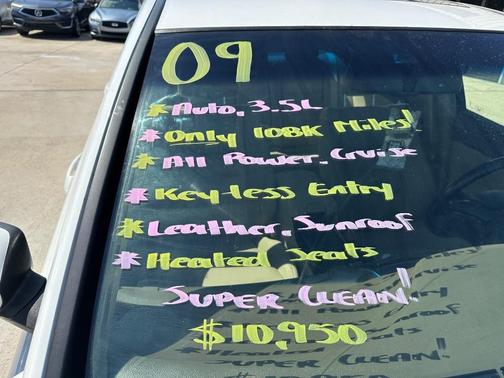 09
* Auto, 3.5L
* Only 108K Miles!
* All Power, Cruise
* Key-less Entry
* Leather, Sunroof
* Heated Seats
SUPER CLEAN!
$10,950